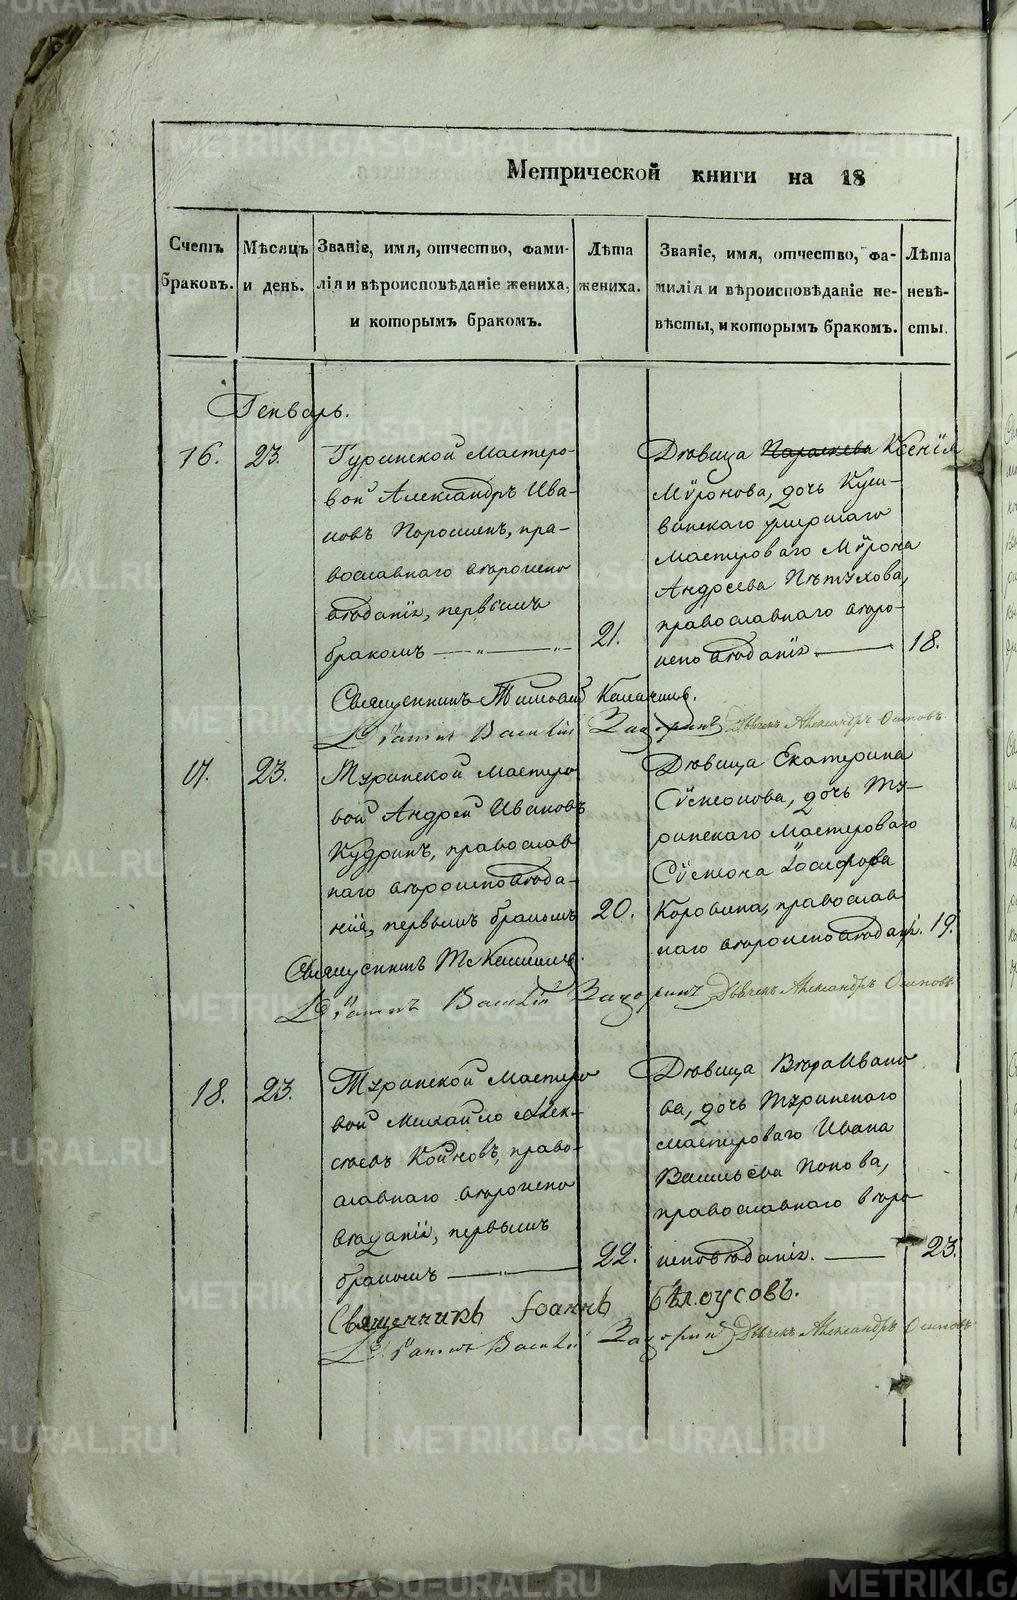 METRIKI.GASO-URAL.RU
Метрической книги на 18
Счетъ браковъ.
Мѣсяцъ и день.
Званіе, имя, отчество, фами-
лія и вѣроисповѣданіе жениха,
и которымъ бракомъ.
Лѣта
жениха.
Званіе, имя, отчество, фа-
милія и вѣроисповѣданіе не-
вѣсты, и которымъ бракомъ.
Лѣта
невѣ-
сты.
Генварь.
16. 23.
Туринской Мастеро-
вой Александръ Ива-
новъ Порошинъ, пра-
вославнаго вѣроиспо
вѣданія, первымъ
бракомъ
21.
Дѣвица Параскева Ксенія
Мѵронова, дочь Куш-
винскаго умершаго
Мастероваго Мѵрона
Андреева Пѣтухова,
православнаго вѣро-
исповѣданія
18.
Священникъ Тимофей
Діаконъ Василій Дьячекъ Александръ Осиповъ
17. 23.
Туринской Мастеро
вой Андрей Ивановъ
Кудринъ, православ
наго вѣроисповѣда-
нія, первымъ бракомъ
20.
Дѣвица Екатерина
Сѵмеонова, дочь Ту-
ринскаго Мастероваго
Сѵмеона Іосифова
Коровина, православ
наго вѣроисповѣданія.
19.
Священникъ
Діаконъ Василій Дьячекъ Александръ Осиповъ
18. 23.
Туринской Мастеро
вой Михайло Алек-
сѣевъ Койновъ, право-
славнаго вѣроиспо
вѣданія, первымъ
бракомъ
22.
Дѣвица Вѣра Ивано
ва, дочь Туринскаго
мастероваго Ивана
Васильева Попова,
православнаго вѣро
исповѣданія.
23.
Священникъ Іоаннъ Бѣлоусовъ.
Діаконъ Василій Дьячекъ Александръ Осиповъ